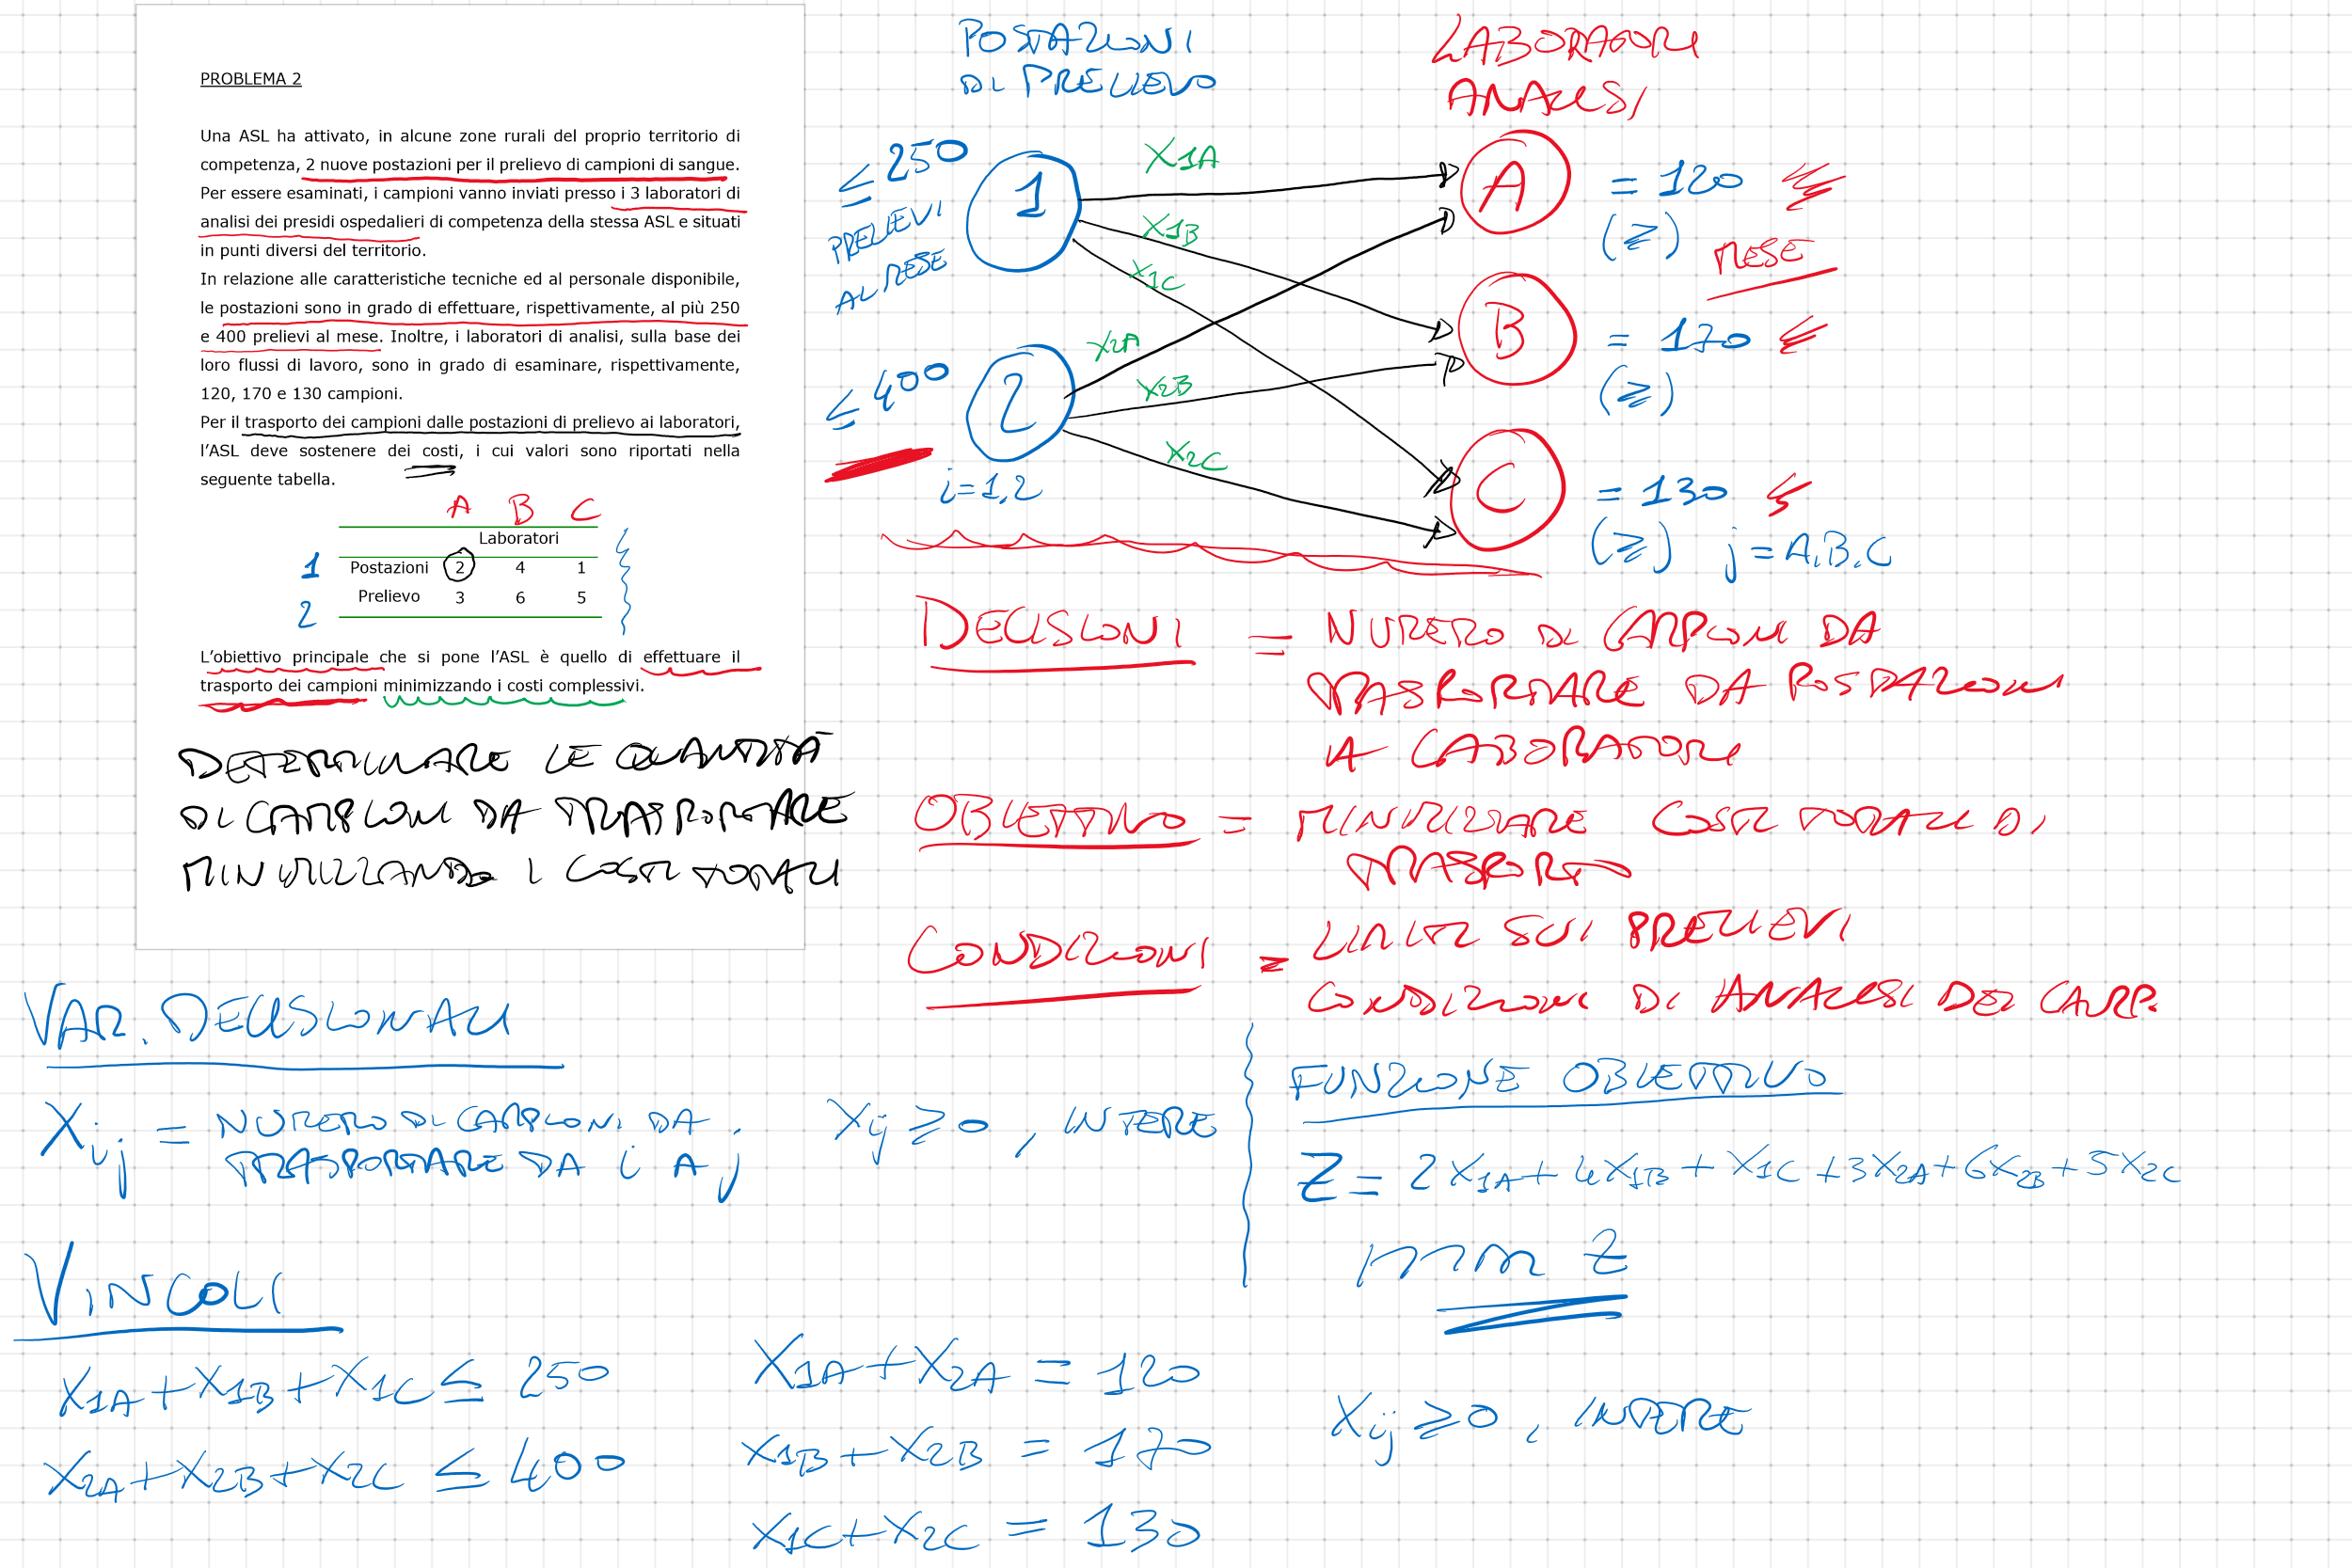 PROBLEMA 2
Una ASL ha attivato, in alcune zone rurali del proprio territorio di
competenza, 2 nuove postazioni per il prelievo di campioni di sangue.
Per essere esaminati, i campioni vanno inviati presso i 3 laboratori di
analisi dei presidi ospedalieri di competenza della stessa ASL e situati
in punti diversi del territorio.
In relazione alle caratteristiche tecniche ed al personale disponibile,
le postazioni sono in grado di effettuare, rispettivamente, al più 250
e 400 prelievi al mese. Inoltre, i laboratori di analisi, sulla base dei
loro flussi di lavoro, sono in grado di esaminare, rispettivamente,
120, 170 e 130 campioni.
Per il trasporto dei campioni dalle postazioni di prelievo ai laboratori,
l'ASL deve sostenere dei costi, i cui valori sono riportati nella
seguente tabella.
A B C
Laboratori
1 Postazioni 2 4 1
2 Prelievo 3 6 5
L'obiettivo principale che si pone l'ASL è quello di effettuare il
trasporto dei campioni minimizzando i costi complessivi.
DETERMINARE LE QUANTITÀ
DI CAMPIONI DA TRASPORTARE
MINIMIZZANDO I COSTI TOTALI
POSTAZIONI
DI PRELIEVO
LABORATORI
ANALISI
≤ 250
PRELIEVI
AL MESE
1
X1A
X1B
X1C
A
= 120
(≥)
MESE
B
= 170
(≥)
≤ 400
2
X2A
X2B
X2C
i=1,2
C
= 130
(≥)
j = A,B,C
DECISIONI = NUMERO DI CAMPIONI DA
TRASPORTARE DA POSTAZIONI
A LABORATORI
OBIETTIVO = MINIMIZZARE COSTI TOTALI DI
TRASPORTO
CONDIZIONI = LIMITI SUI PRELIEVI
CONDIZIONI DI ANALISI DEI CAMP.
VAR. DECISIONALI
Xij = NUMERO DI CAMPIONI DA
TRASPORTARE DA i A j
Xij ≥ 0, INTERE
FUNZIONE OBIETTIVO
Z = 2X1A + 4X1B + X1C + 3X2A + 6X2B + 5X2C
min Z
VINCOLI
X1A + X1B + X1C ≤ 250
X2A + X2B + X2C ≤ 400
X1A + X2A = 120
X1B + X2B = 170
X1C + X2C = 130
Xij ≥ 0, INTERE